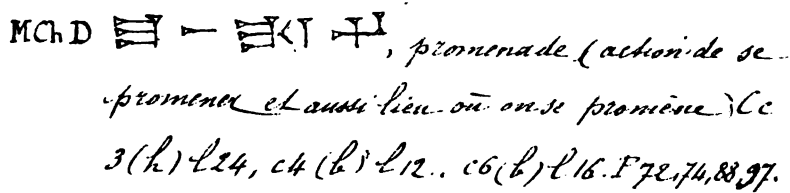 MChD 𒈠 𒀸, promenade (action de se
promener et aussi lieu où on se promène) Cc
3 (h) l 24, c4 (b) l 12.. c6 (b) l 16. F 72, 74, 88, 97.